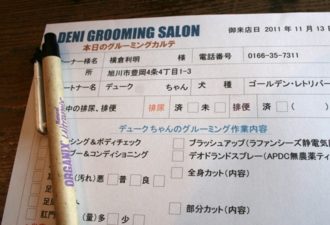 DENI GROOMING SALON
本日のグルーミングカルテ 御来店日 2011 年 11 月 13
ートナー様名 横倉利明 様 電話番号 0166-35-7311
所 旭川市豊岡4条4丁目1-3
ートナー名 デューク ちゃん 犬 種 ゴールデン・レトリバー
中の排尿、排便 排尿 済 未 排便 済
デュークちゃんのグルーミング作業内容
シング&ボディチェック ブラッシュアップ(ラファンシーズ静電気
プー&コンディショニング デオドランドスプレー(APDC無農薬ティ
(汚れ) 悪 普 良 全身カット(内容)
足
肛門 (量) 多 少 部分カット(内容)
ORGANIX